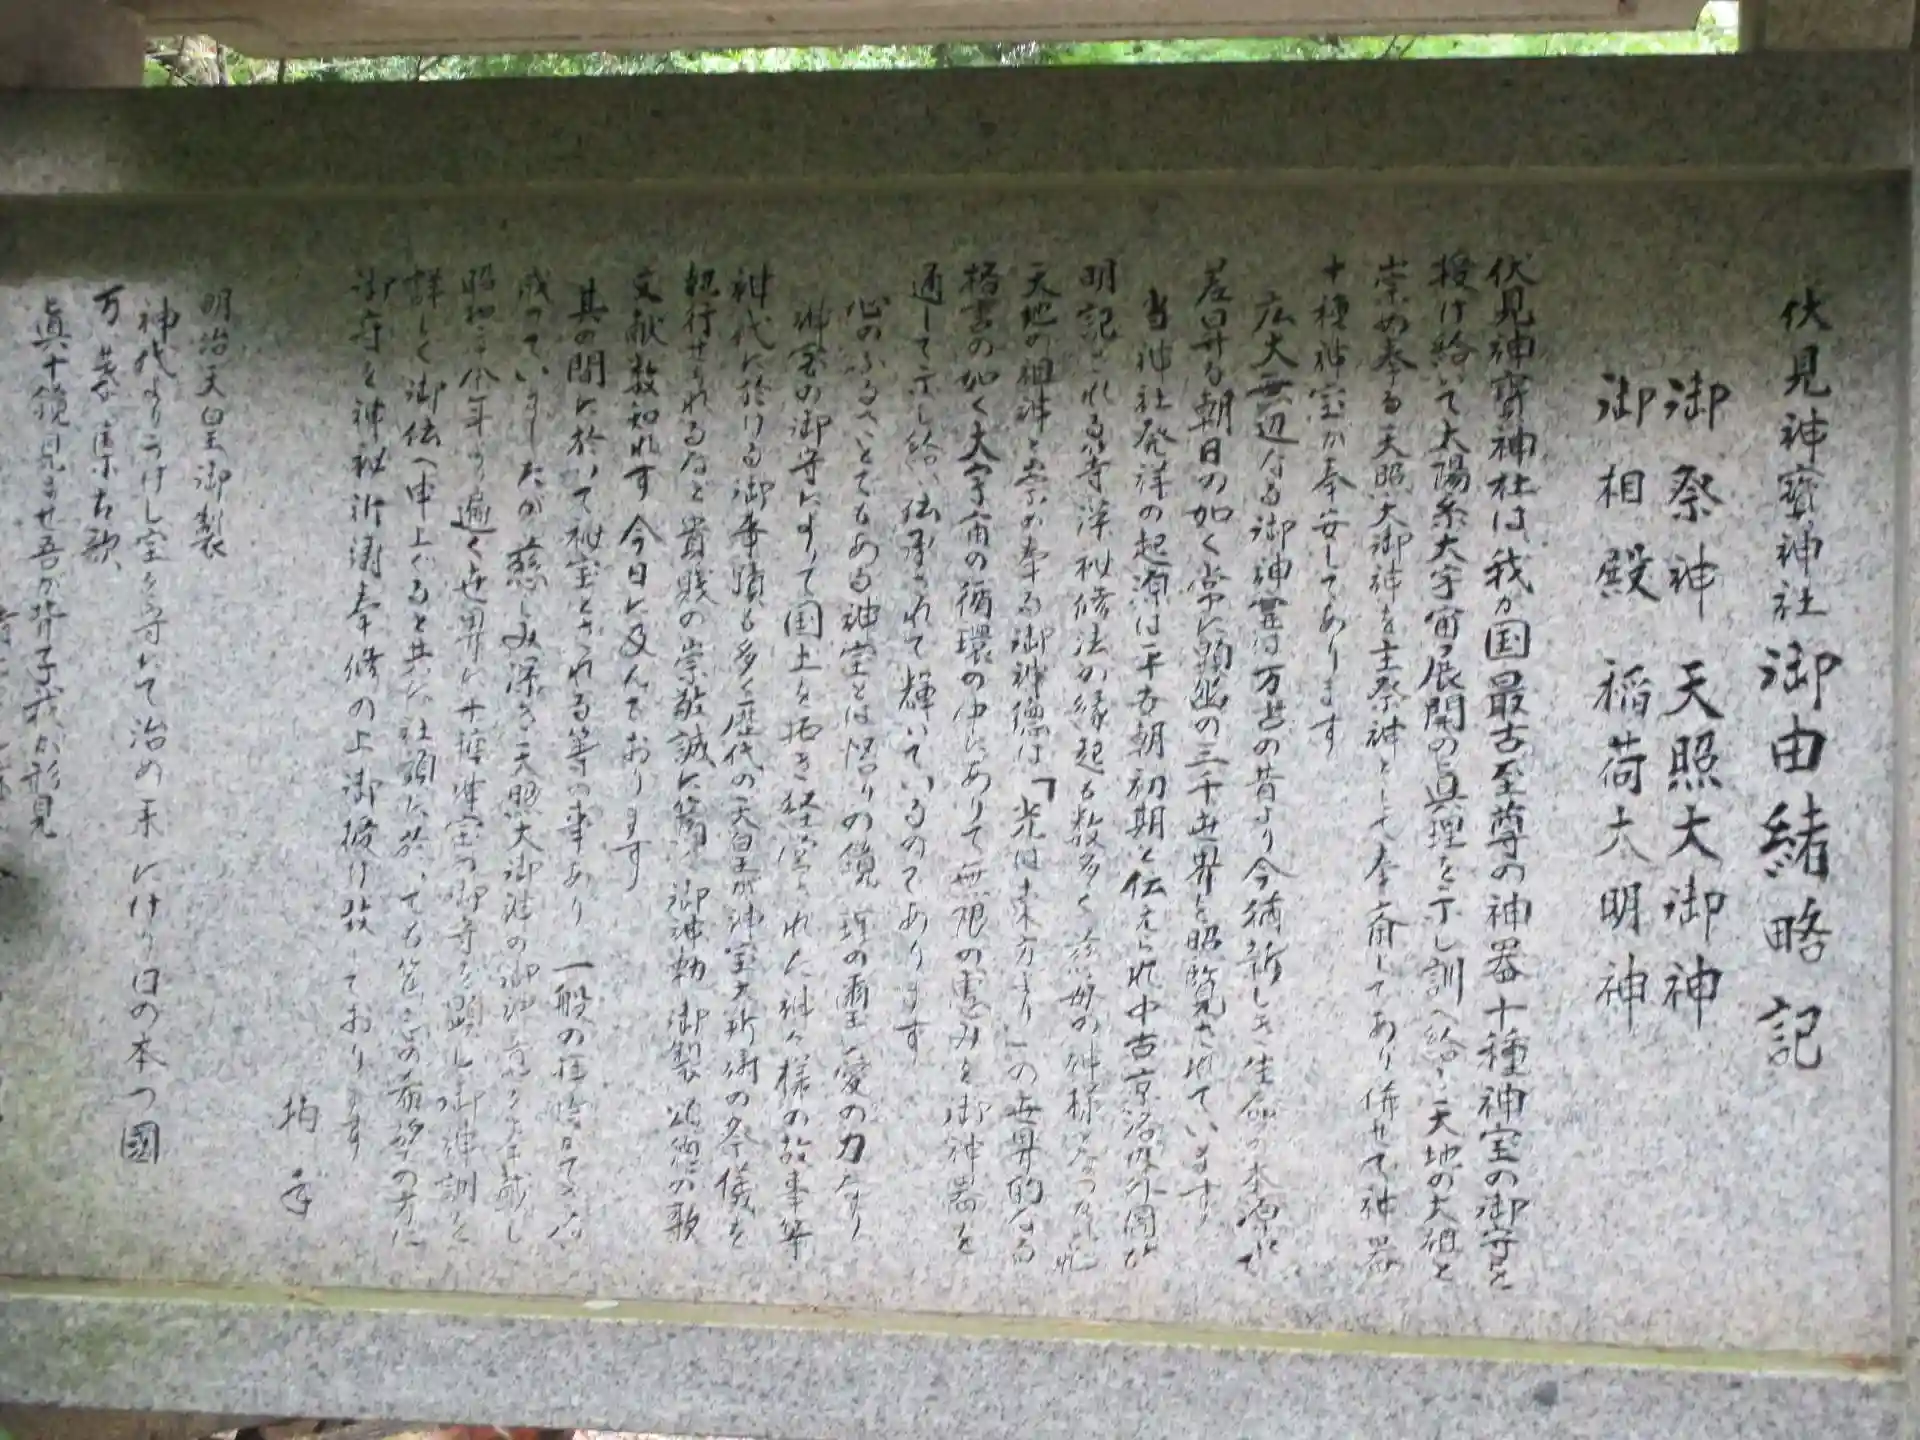 伏見神寳神社御由緒略記
御祭神 天照大御神
御相殿 稲荷大明神
伏見神寳神社は、我が国最古至尊の神器十種神宝の御守を
授け給いて太陽系大宇宙展開の真理を示し訓へ給ふ天地の大祖と
崇め奉る天照大御神を主祭神として奉斎してあり併せて神器
十種神宝が奉安してあります
広大無辺なる御神霊は万古の昔より今猶新しき生命の本源にて
差昇る朝日の如く常に顕幽の三千世界を昭覧されています
当神社発祥の起源は平安朝初期と伝えられ中古京洛内外図
明記される寺 秘修法が縁起も数多く慈母の神様と
天地の祖神と崇め奉る御神徳は「光は東方より」の世界的なる
格言の如く大宇宙の循環の中にありて無限の恵みを御神器を
通して示し給ひ伝承されて輝いているのであります
心のふるさとでもある神宝とは悟りの鏡 愛の力なり
御宝の御守によりて国土を拓き経営された神々様の故事等
神代に於ける御事蹟も多く歴代の天皇が神宝大祈祷の祭儀を
執行せられるなど貴賤の崇敬誠に篤く御神勅御製 の歌
文献数知れず今日に及んでおります
其の間に於いて秘宝とされる等の事あり一般の
成っていましたが慈しみ深き天照大御神の御神
昭和 年より遍く世界に十種神宝の御守を顕し御神訓を
詳しく御伝へ申上ぐると共に社頭に於いても の希望の方に
御守を神秘祈祷奉修の上御授け致しております
明治天皇御製
神代よりうけし宝を守りて治め来にけり日の本つ國
万葉集古歌
真十鏡見ませ吾が背子我が形見